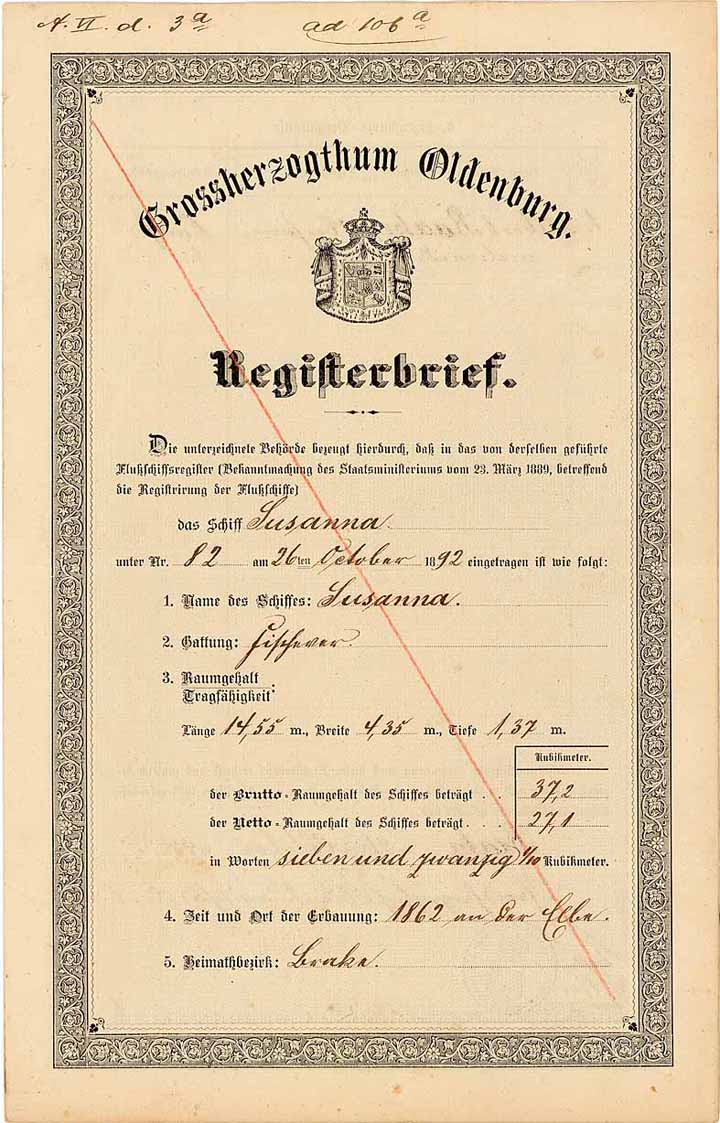 A. VI. d. 3ª ad 106ª
Grossherzogthum Oldenburg.
Registerbrief.
Die unterzeichnete Behörde bezeugt hierdurch, daß in das von derselben geführte
Flußschiffsregister (Bekanntmachung des Staatsministeriums vom 23. März 1889, betreffend
die Registrirung der Flußschiffe)
das Schiff Susanna
unter Nr. 82 am 26ten October 1892 eingetragen ist wie folgt:
1. Name des Schiffes: Susanna.
2. Gattung: Fischever.
3. Raumgehalt
Tragfähigkeit:
Länge 14,55 m., Breite 4,35 m., Tiefe 1,37 m.
Kubikmeter.
der Brutto-Raumgehalt des Schiffes beträgt . . 37,2
der Netto-Raumgehalt des Schiffes beträgt . . . 27,1
in Worten sieben und zwanzig 1/10 Kubikmeter.
4. Zeit und Ort der Erbauung: 1862 an der Elbe.
5. Heimathbezirk: Brake.